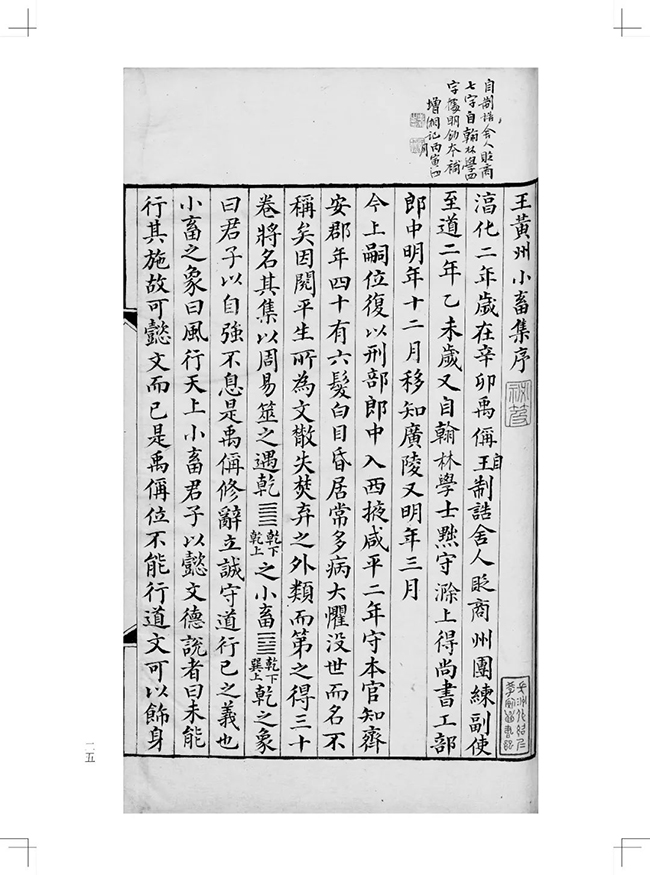 自制誥舍人貶商
七字自翰林學四
字據明鈔本補
增僴記丙寅四
月
王黃州小畜集序
湻化二年歲在辛卯禹偁王自制誥舍人貶商州團練副使
至道二年乙未歲又自翰林學士黜守滁上得尚書工部
郎中明年十二月移知廣陵又明年三月
今上嗣位復以刑部郎中入西掖咸平二年守本官知齊
安郡年四十有六髮白目昏居常多病大懼没世而名不
稱矣因閱平生所為文散失焚弃之外類而第之得三十
卷將名其集以周易筮之遇乾䷀乾下乾上之小畜䷈乾下巽上乾之象
曰君子以自強不息是禹偁修辭立誠守道行已之義也
小畜之象曰風行天上小畜君子以懿文德說者曰未能
行其施故可懿文而已是禹偁位不能行道文可以飾身
二五